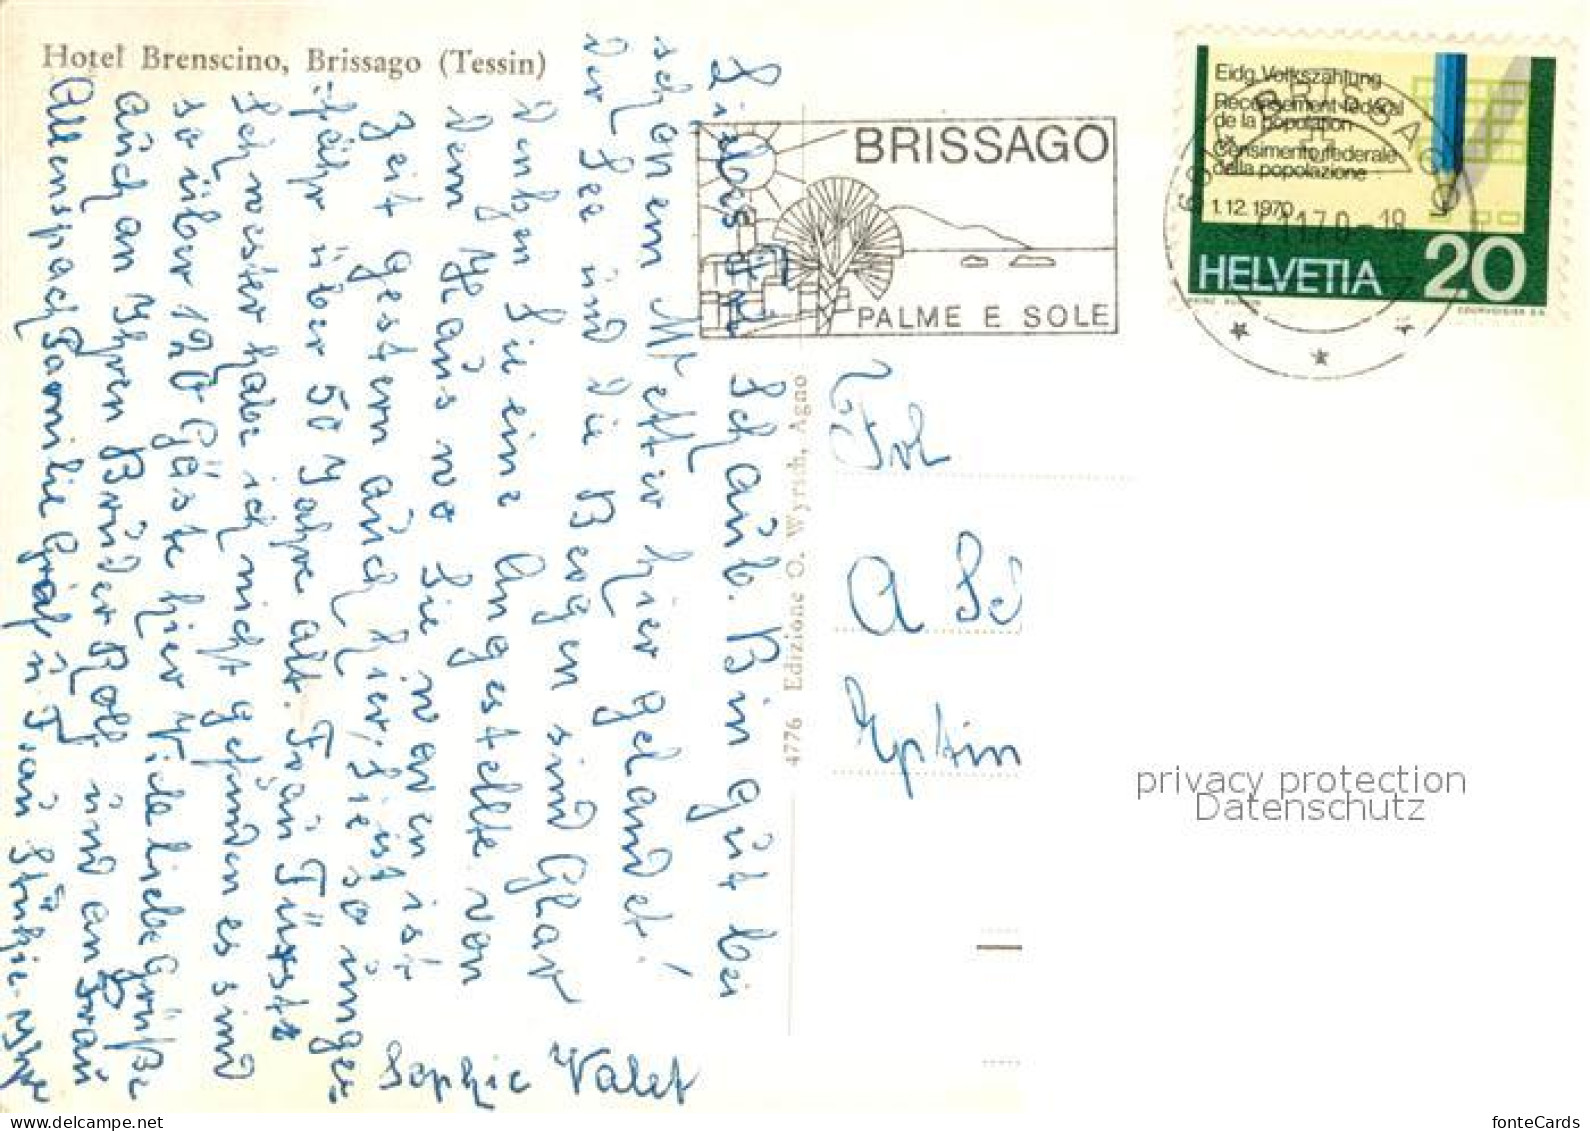 Hotel Brenscino, Brissago (Tessin)
Liebes Frl. Schaub. Bin gut bei
schönem Mettr hier gelandet!
Der See und die Bergen sind Glar
denken Sie eine Angestellte von
dem Haus wo Sie waren ist
Zeit gestern auch hier; Sie ist
so unge=
fähr über 50 Jahre alt. Frau Fürst
Schwester habe ich nicht gefunden es sind
so über 120 Gäste hier Viele liebe Grüße
auch an Ihren Bruder Rolf. und an Frau
Allenspach Familie Gräf u. Frau Ihre
Sophie Valet
4776 Edizione O. Wyrsch, Agno
BRISSAGO
PALME E SOLE
BRISSAGO
6
4.11.70-18
Eidg. Volkszählung
Recensement fédéral
de la population
Censimento federale
della popolazione
1.12.1970
HELVETIA 20
COURVOISIER S.A.
Frl
A Sc
Eptin
privacy protection
Datenschutz
www.delcampe.net
fonteCards